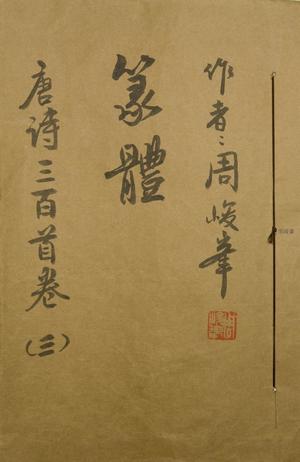 作者：周峻峯
篆體
唐诗三百首卷（三）